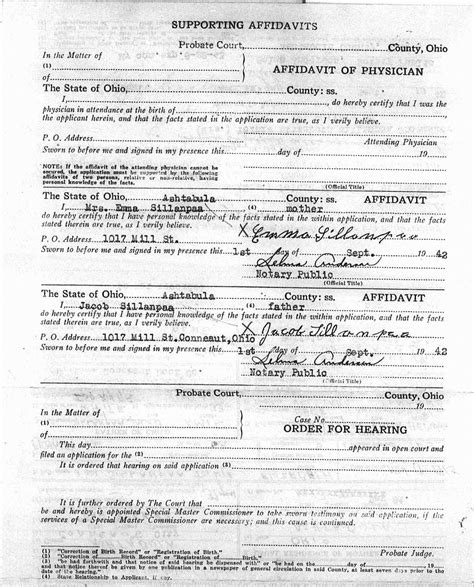 SUPPORTING AFFIDAVITS
Probate Court, County, Ohio
In the Matter of
(1)
of
AFFIDAVIT OF PHYSICIAN
The State of Ohio, County: ss.
I, do hereby certify that I was the
physician in attendance at the birth of
the applicant herein, and that the facts stated in the application are true, as I verily believe.
P. O. Address
Attending Physician
Sworn to before me and signed in my presence this day of 19
NOTE: If the affidavit of the attending physician cannot be
secured, the application must be supported by the following
affidavits of two persons, relative or non-relative, having
personal knowledge of the facts.
(Official Title)
The State of Ohio, Ashtabula County: ss. AFFIDAVIT
I, Mrs. Emma Sillanpaa (4) mother
do hereby certify that I have personal knowledge of the facts stated in the within application, and that the facts
stated therein are true, as I verily believe.
X Emma Sillanpaa
P. O. Address 1017 Mill St.
Sworn to before me and signed in my presence this 1st day of Sept. 19 42
Selma Anderson
Notary Public
(Official Title)
The State of Ohio, Ashtabula County: ss. AFFIDAVIT
I, Jacob Sillanpaa (4) father
do hereby certify that I have personal knowledge of the facts stated in the within application, and that the facts
stated therein are true, as I verily believe.
X Jacob Sillanpaa
P. O. Address 1017 Mill St. Conneaut, Ohio
Sworn to before me and signed in my presence this 1st day of Sept. 19 42
Selma Anderson
Notary Public
(Official Title)
Probate Court, County, Ohio
19
In the Matter of
(1)
of
Case No.
ORDER FOR HEARING
This day appeared in open court and
filed an application for the (2)
It is ordered that hearing on said application (3)
It is further ordered by The Court that
be and hereby is appointed Special Master Commissioner to take sworn testimony on said application, if the
services of a Special Master Commissioner are necessary; and this cause is continued.
Probate Judge.
(1) "Correction of Birth Record" or "Registration of Birth."
(2) "Correction of Birth Record" or "Registration of Birth."
(3) "be had forthwith and that notice of said hearing be dispensed with" or "be had on the day of 19 and
that notice thereof be given by one publication in a newspaper of general circulation in said County, at least seven days prior to the
date of the hearing."
(4) State Relationship to Applicant, if any.